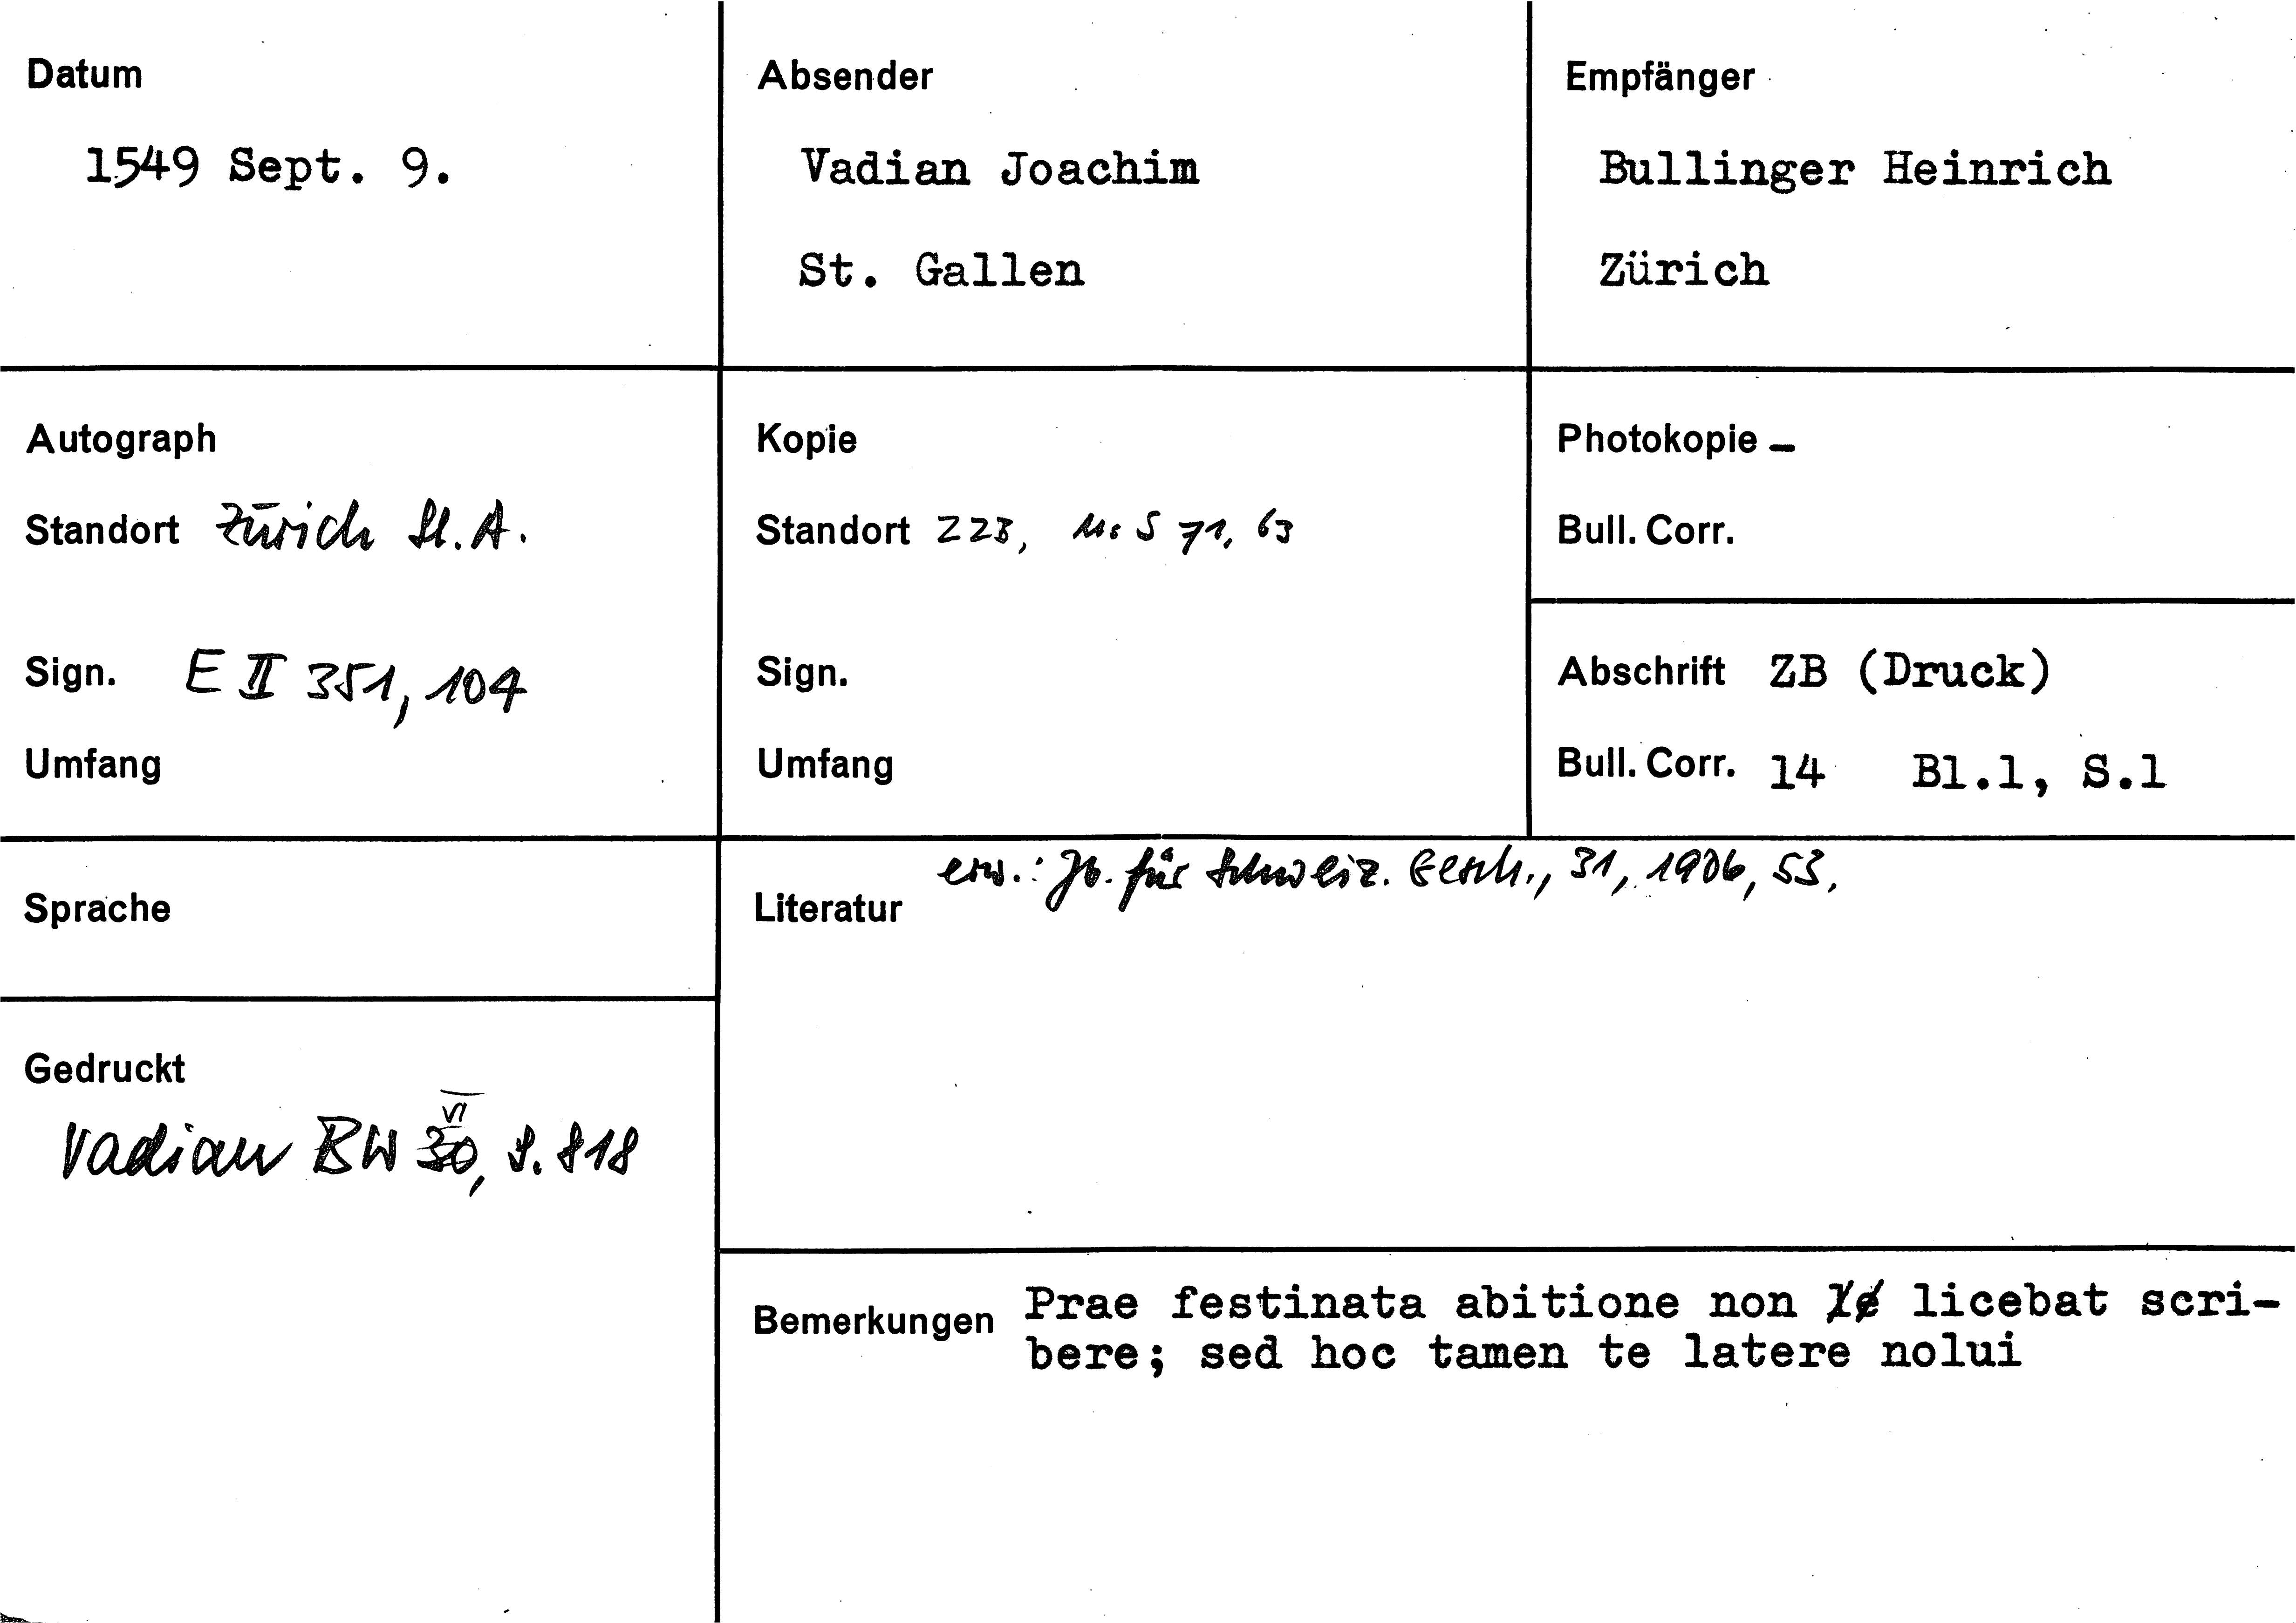 Datum
1549 Sept. 9.
Absender
Vadian Joachim
St. Gallen
Empfänger
Bullinger Heinrich
Zürich
Autograph
Standort Zürich St. A.
Sign. E II 351, 104
Umfang
Kopie
Standort Z 23, Ms S 71, 63
Sign.
Umfang
Photokopie –
Bull. Corr.
Abschrift ZB (Druck)
Bull. Corr. 14 Bl.1, S.1
Sprache
Literatur erw.: Jb. für Schweiz. Gesch., 31, 1906, 53.
Gedruckt
VI
Vadian BW 30, S. 818
Bemerkungen Prae festinata abitione non licebat scri-
bere; sed hoc tamen te latere nolui